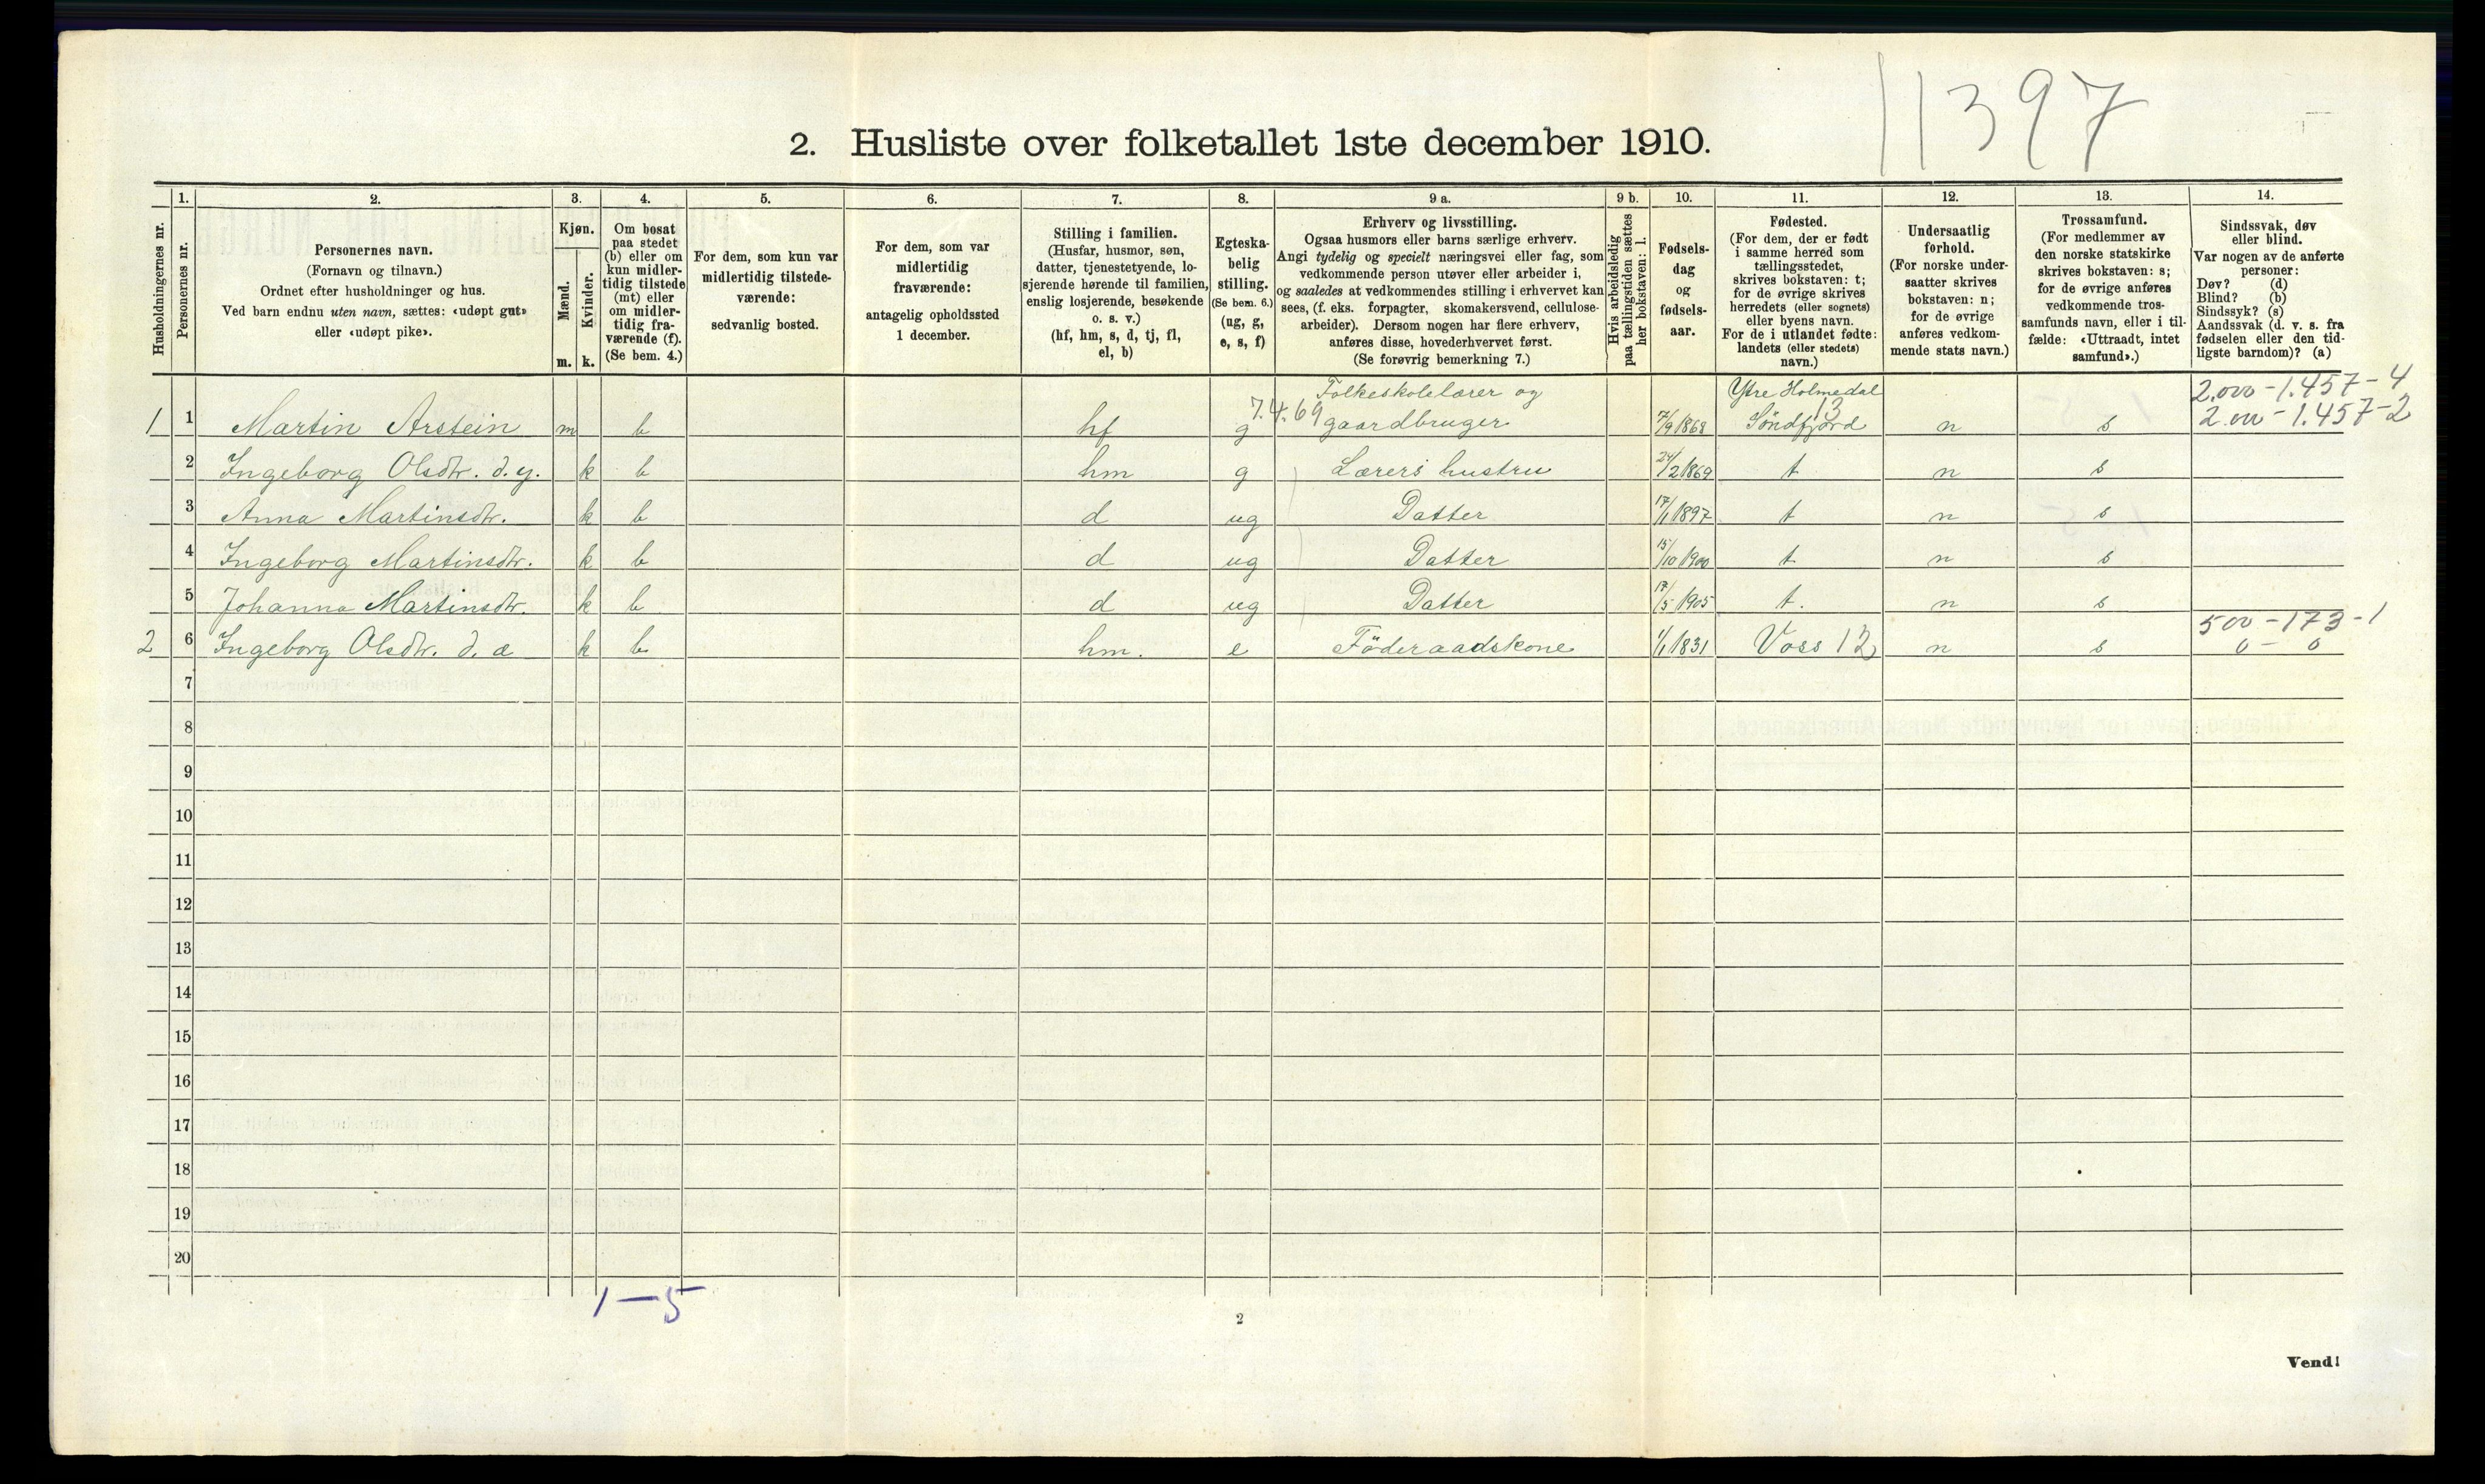 11397
2. Husliste over folketallet 1ste december 1910.
Husholdningernes nr.
1.
Personernes nr.
2.
Personernes navn.
(Fornavn og tilnavn.)
Ordnet efter husholdninger og hus.
Ved barn endnu uten navn, sættes: «udøpt gut»
eller «udøpt pike».
3.
Kjøn.
Mænd.
Kvinder.
m. k.
4.
Om bosat
paa stedet
(b) eller om
kun midler-
tidig tilstede
(mt) eller
om midler-
tidig fra-
værende (f).
(Se bem. 4.)
5.
For dem, som kun var
midlertidig tilstede-
værende:
sedvanlig bosted.
6.
For dem, som var
midlertidig
fraværende:
antagelig opholdssted
1 december.
7.
Stilling i familien.
(Husfar, husmor, søn,
datter, tjenestetyende, lo-
sjerende hørende til familien,
enslig losjerende, besøkende
o. s. v.)
(hf, hm, s, d, tj, fl,
el, b)
8.
Egteska-
belig
stilling.
(Se bem. 6.)
(ug, g,
e, s, f)
9 a.
Erhverv og livsstilling.
Ogsaa husmors eller barns særlige erhverv.
Angi tydelig og specielt næringsvei eller fag, som
vedkommende person utøver eller arbeider i,
og saaledes at vedkommendes stilling i erhvervet kan
sees, (f. eks. forpagter, skomakersvend, cellulose-
arbeider). Dersom nogen har flere erhverv,
anføres disse, hovederhvervet først.
(Se forøvrig bemerkning 7.)
9 b.
Hvis arbeidsledig
paa tællingstiden sættes
her bokstaven: l.
10.
Fødsels-
dag
og
fødsels-
aar.
11.
Fødested.
(For dem, der er født
i samme herred som
tællingsstedet,
skrives bokstaven: t;
for de øvrige skrives
herredets (eller sognets)
eller byens navn.
For de i utlandet fødte:
landets (eller stedets)
navn.)
12.
Undersaatlig
forhold.
(For norske under-
saatter skrives
bokstaven: n;
for de øvrige
anføres vedkom-
mende stats navn.)
13.
Trossamfund.
(For medlemmer av
den norske statskirke
skrives bokstaven: s;
for de øvrige anføres
vedkommende tros-
samfunds navn, eller i til-
fælde: «Uttraadt, intet
samfund».)
14.
Sindssvak, døv
eller blind.
Var nogen av de anførte
personer:
Døv? (d)
Blind? (b)
Sindssyk? (s)
Aandssvak (d. v. s. fra
fødselen eller den tid-
ligste barndom)? (a)
Folkeskolelærer og Ytre Holmedal 2.000 - 1.457 - 4
1 1 Martin Arstein m b hf g 7.4.69 gaardbruger 7/9 1868 Söndfjord 13 n s 2.000 - 1.457 - 2
2 Ingeborg Olsdtr. d. y. k b hm g Lærers hustru 24/2 1869 t n s
3 Anna Martinsdtr. k b d ug Datter 17/1 1897 t n s
4 Ingeborg Martinsdtr. k b d ug Datter 15/10 1900 t n s
5 Johanna Martinsdtr. k b d ug Datter 17/5 1905 t. n s
500 - 173 - 1
2 6 Ingeborg Olsdtr. d. æ k b hm. e Föderaadskone 1/1 1831 Voss 12 n s 0 - 0
7
8
9
10
11
12
13
14
15
16
17
18
19
20
1-5
2
Vend!